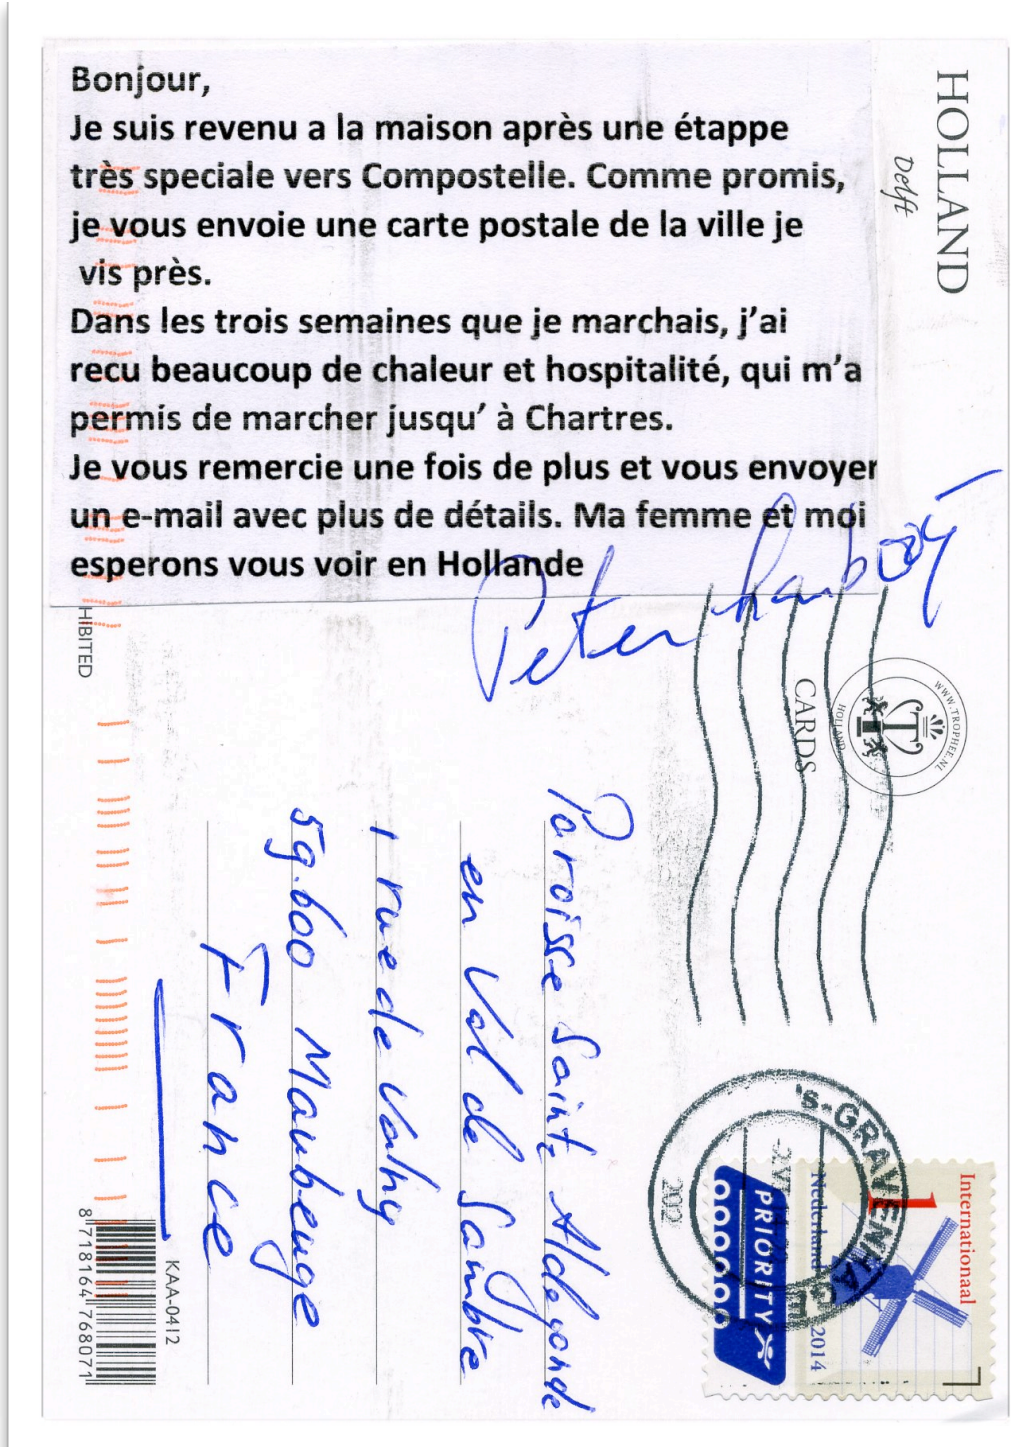 Bonjour,
Je suis revenu a la maison après une étappe
très speciale vers Compostelle. Comme promis,
je vous envoie une carte postale de la ville je
vis près.
Dans les trois semaines que je marchais, j’ai
recu beaucoup de chaleur et hospitalité, qui m’a
permis de marcher jusqu’ à Chartres.
Je vous remercie une fois de plus et vous envoyer
un e-mail avec plus de détails. Ma femme et moi
esperons vous voir en Hollande
Peter
HOLLAND
Delft
HIBITED
WWW.TROPHEE.NL
HOLLAND
CARDS
Paroisse Sainte Aldegonde
en Val de Sambre
1 rue de Valmy
59.600 Maubeuge
France
's-GRAVENHAGE
Internationaal
1
Nederland 2014
PRIORITY
KAA-0412
8 718164 768071